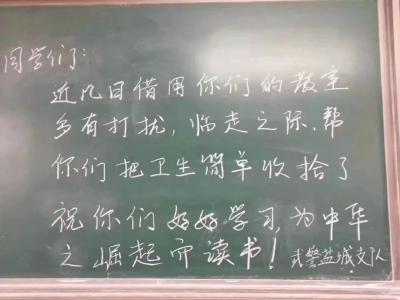 同学们：
近几日借用你们的教室
多有打扰，临走之际，帮
你们把卫生简单收拾了
祝你们好好学习，为中华
之崛起而读书！武警盐城支队